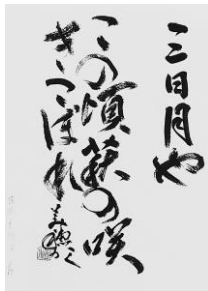 三日月や
この頃萩の咲
きこぼれ